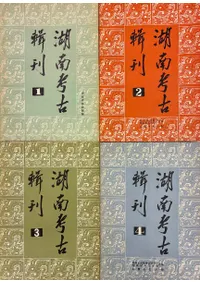 湖南考古
輯刊
1
湖南考古
輯刊
2
湖南考古
輯刊
3
湖南考古
輯刊
4